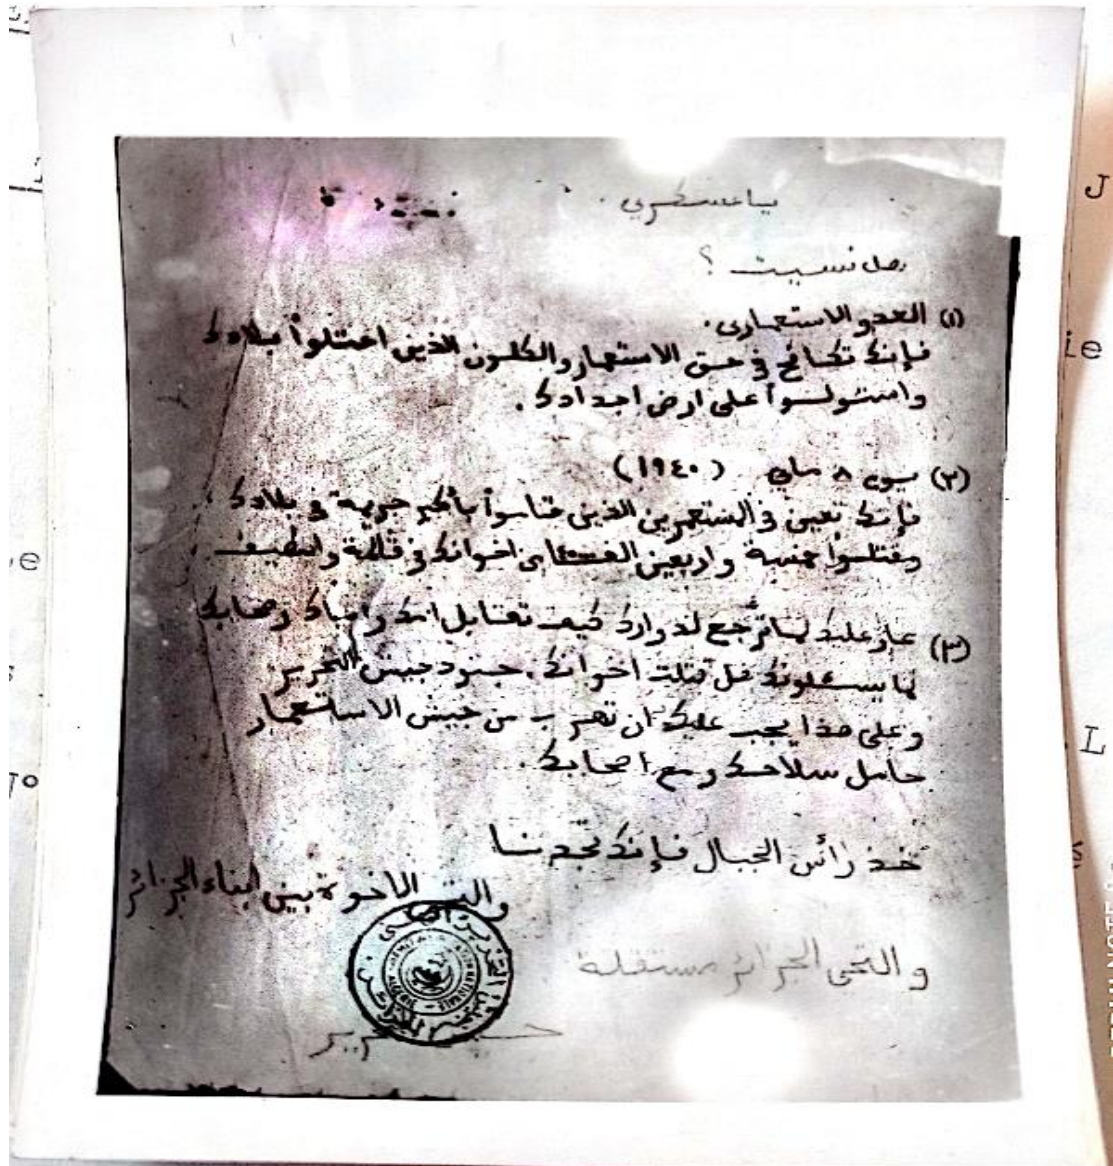 يا عسكري
هل نسيت ؟
(١) العدو الاستعماري .
فإنك تكافح في حق الاستعمار والكلون الذين احتلوا بلادك
واستولوا على ارض اجدادك .
(٢) يوم ٨ ماي (١٩٤٠)
فإنك تعين في المستعمرين الذين قاموا بأكبر جريمة في بلادك
وقتلوا خمسة واربعين الف من اخوانك في قالمة واسطيف
(٣) عار عليك لما ترجع لدوارك كيف تقابل امك واباك وصحابك
لما يسئلونك هل قتلت اخوانك . جنود جيش التحرير
وعلى هذا يجب عليك ان تهرب من جيش الاستعمار
حامل سلاحك ومع اصحابك .
خذ رأس الجبال فإنك تجدنا
الاخوة بين ابناء الجزائر
و التحي الجزائر مستقلة
ALGERIE
J
ie
L